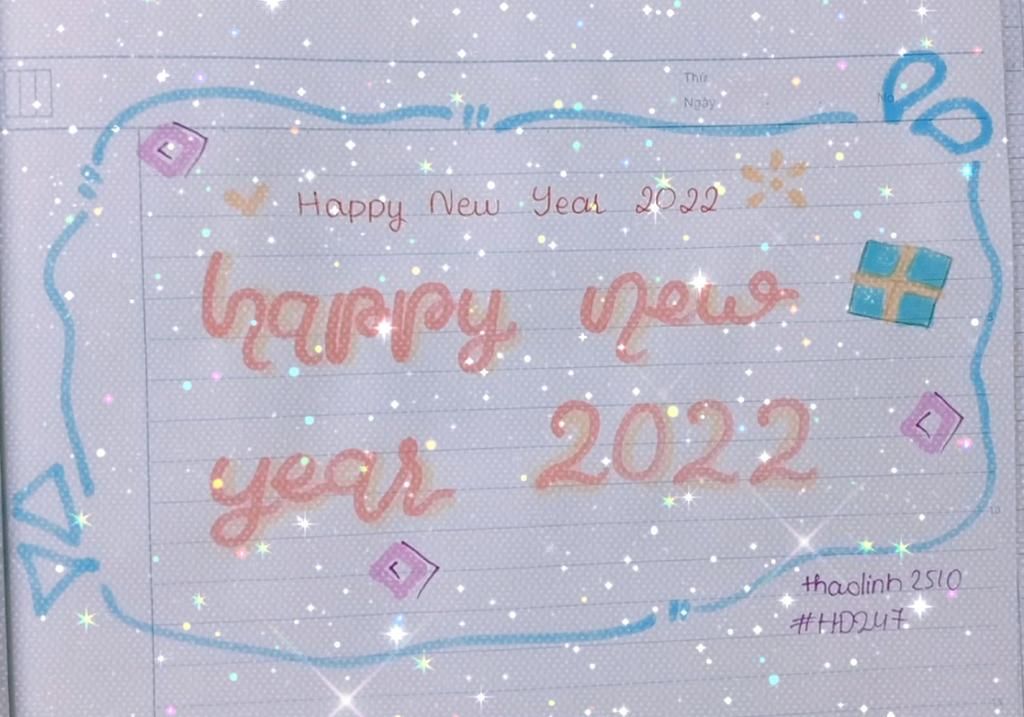 Thứ
Ngày
No
Happy New Year 2022
happy new
year 2022
thaolinh 2510
#HD247